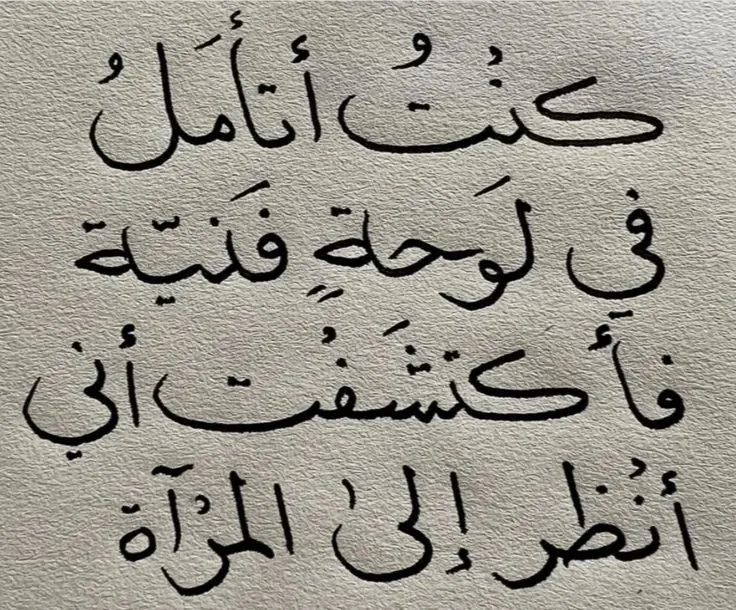 كنْتُ أتأمَلُ
في لَوحةٍ فَنيّة
فأكتشَفْت أني
أنْظر إلىٰ المرْآة